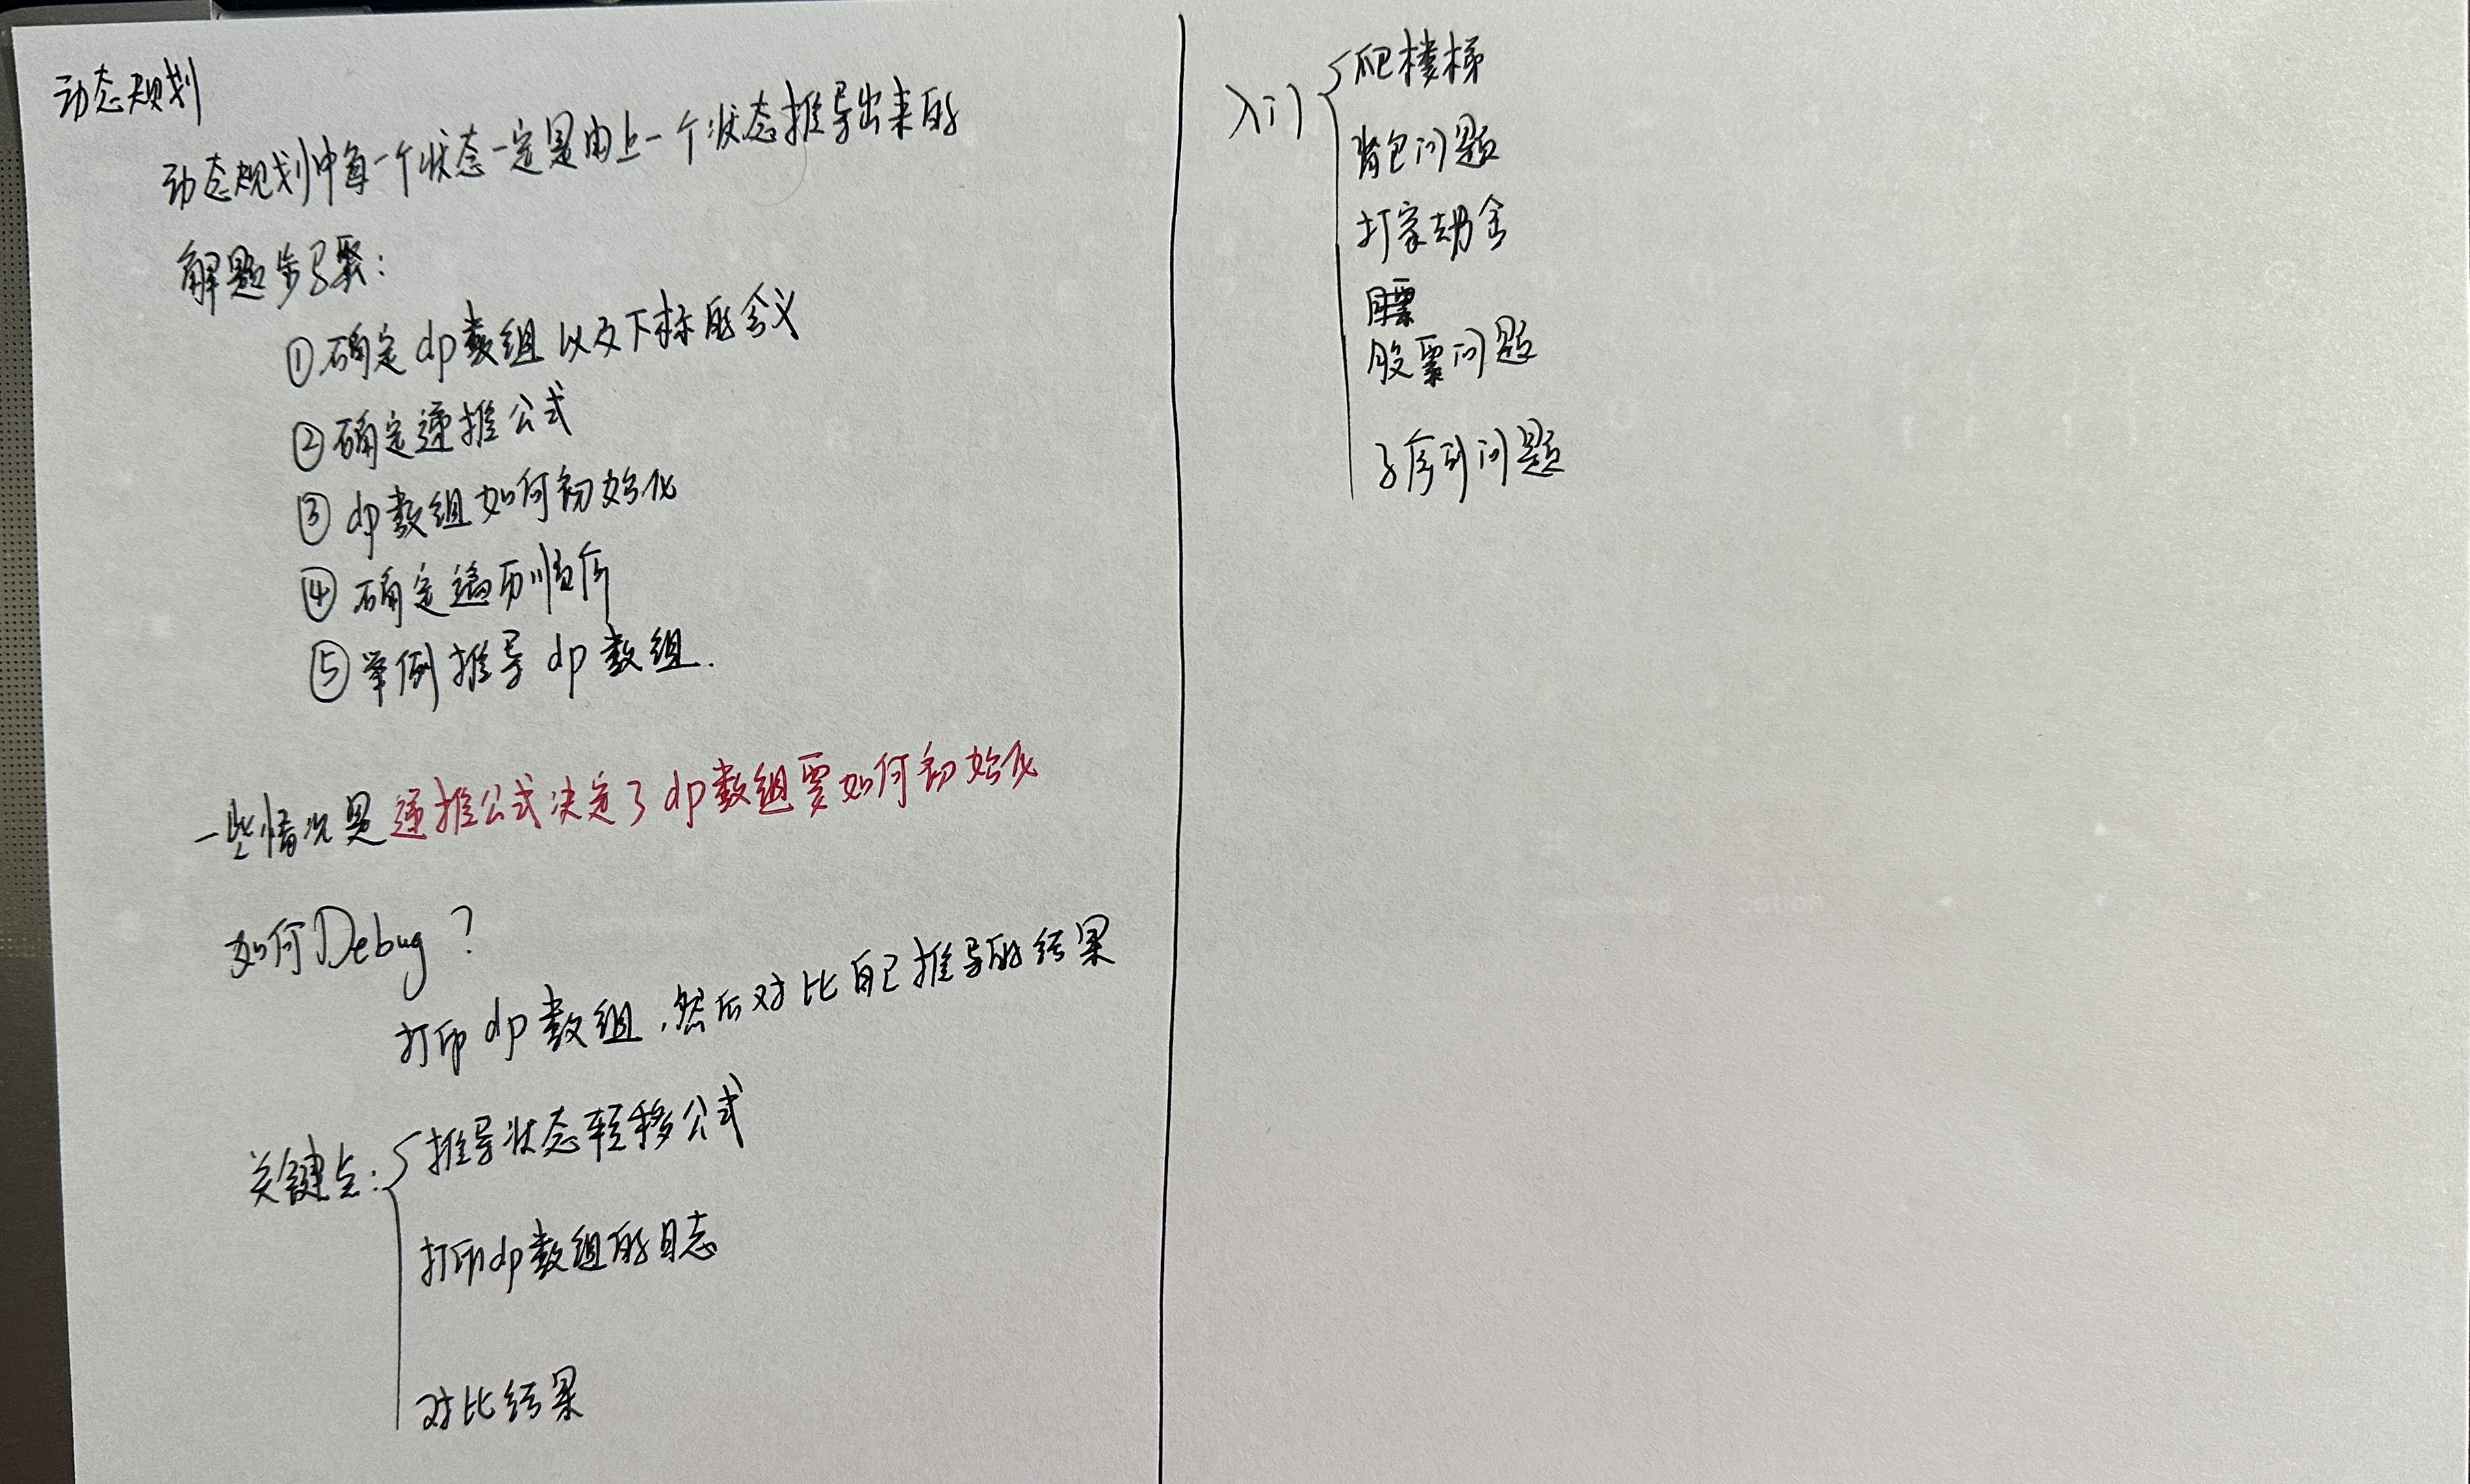 动态规划
动态规划中每一个状态一定是由上一个状态推导出来的
解题步骤:
①确定dp数组以及下标的含义
②确定递推公式
③dp数组如何初始化
④确定遍历顺序
⑤举例推导dp数组.
一些情况是递推公式决定了dp数组要如何初始化
如何Debug?
打印dp数组,然后对比自己推导的结果
关键点:
推导状态转移公式
打印dp数组的日志
对比结果
入门
爬楼梯
背包问题
打家劫舍
股票问题
子序列问题